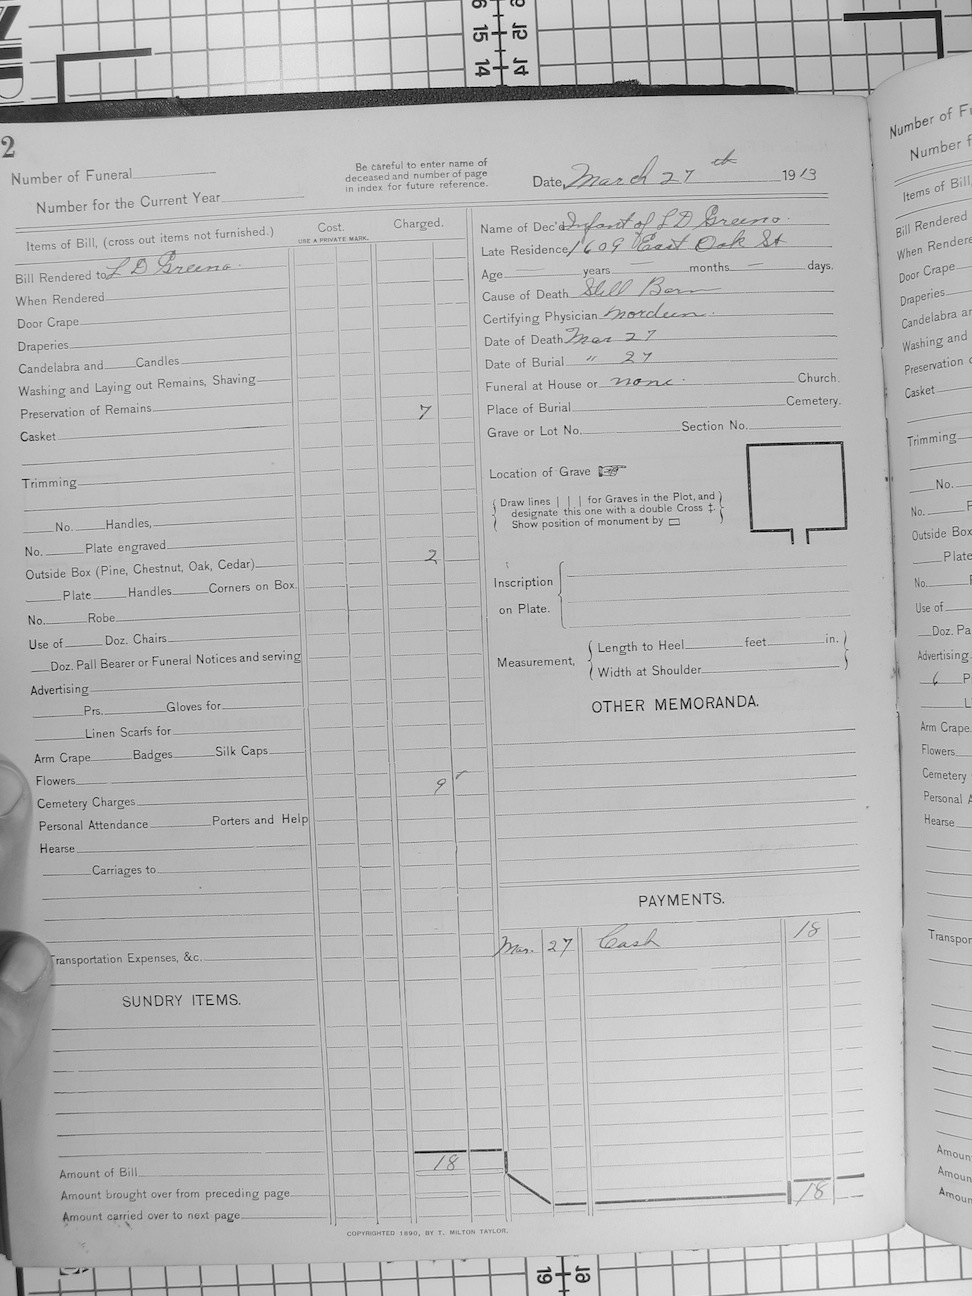 15 15
14 14
2
Number of Funeral
Number for the Current Year
Be careful to enter name of
deceased and number of page
in index for future reference.
Date, March 27th 1913
Items of Bill, (cross out items not furnished.)
Cost.
USE A PRIVATE MARK.
Charged.
Bill Rendered to L D Greeno.
When Rendered
Door Crape
Draperies
Candelabra and Candles
Washing and Laying out Remains, Shaving
Preservation of Remains
Casket 7
Trimming
No. Handles,
No. Plate engraved
Outside Box (Pine, Chestnut, Oak, Cedar) 2
Plate Handles Corners on Box.
No. Robe
Use of Doz. Chairs
Doz. Pall Bearer or Funeral Notices and serving
Advertising
Prs. Gloves for
Linen Scarfs for
Arm Crape Badges Silk Caps
Flowers
Cemetery Charges 9
Personal Attendance Porters and Help
Hearse
Carriages to
Transportation Expenses, &c.
SUNDRY ITEMS.
Amount of Bill 18
Amount brought over from preceding page
Amount carried over to next page
Name of Dec'd Infant of L D Greeno.
Late Residence 1609 East Oak St
Age — years — months — days.
Cause of Death Still Born
Certifying Physician
Date of Death Mar 27
Date of Burial " 27
Funeral at House or none. Church.
Place of Burial Cemetery.
Grave or Lot No. Section No.
Location of Grave
Draw lines | | | for Graves in the Plot, and
designate this one with a double Cross ‡.
Show position of monument by ▭
Inscription
on Plate.
Measurement,
Length to Heel feet in.
Width at Shoulder
OTHER MEMORANDA.
PAYMENTS.
Mar. 27 Cash 18
18
COPYRIGHTED 1890, BY T. MILTON TAYLOR.
Number of
Number
Items of Bill,
Bill Rendered
When
Door Crape
Draperies
Candelabra
Washing and
Preservation
Casket
Trimming
No.
No.
Outside Box
Plate
No.
Use of
Doz.
Advertising
6
Arm Crape
Flowers
Cemetery
Personal
Hearse
Amount
Amount
Amount
19 19